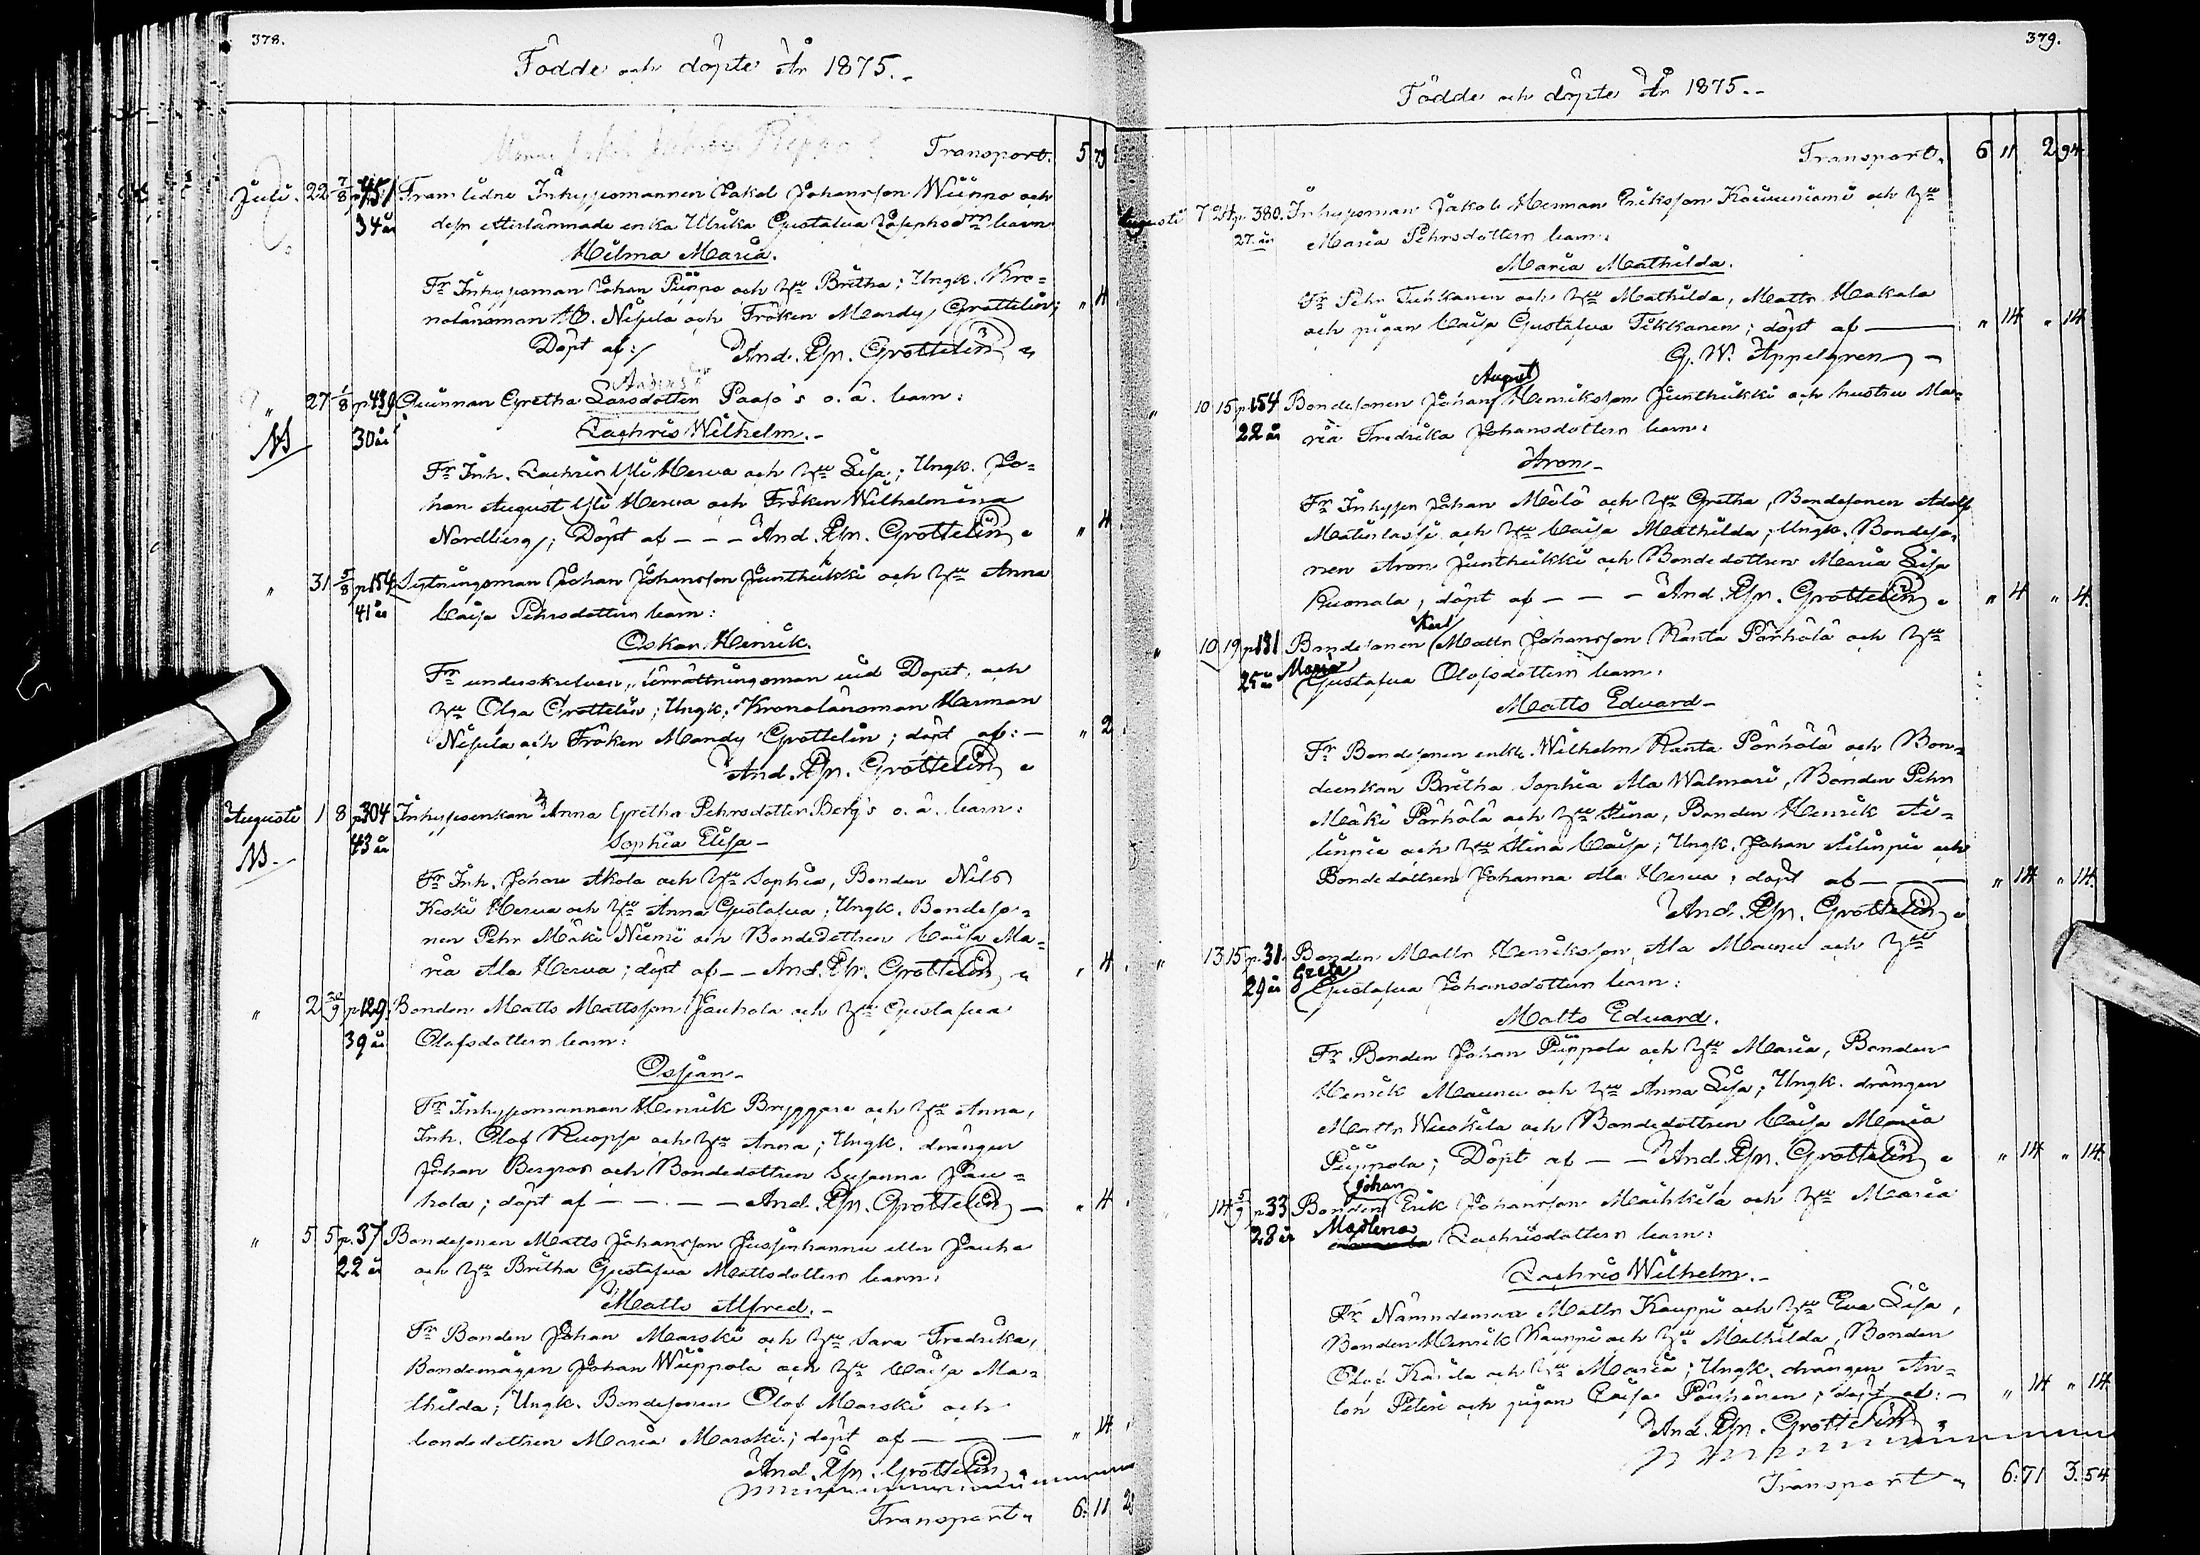 378.
Födde och döpte År 1875.
Transport. 5 79
Juli. 22 7/8 p. 451 Framlidne Inhysesmannen Jakob Johansson Wiinno och
34 år dess efterlämnade enka Ulrika Gustafva Josephsd:rn barn
Hilma Maria.
Fr Inhysesman Johan Piippo och Hu Britha; Ungk. Kro-
nolänsman H. Nisula och Fröken Mandy Grottelin; " 4
Döpt af: And. Joh. Grottelin
" 27 1/8 p. 439 Qvinnan Gretha Larsdotter Paaso's o. ä. barn:
Anders
NB 30 år Zachris Wilhelm.
Fr Inh. Zachris Yli Herva och Hu Lisa; Ungk. Jo-
han August Yli Herva och Fröken Wilhelmina
Nordberg; Döpt af - - - And. Joh. Grottelin " 4
" 31 5/8 p. 154 Sytningsman Johan Johansson Junttikki och Hu Anna
41 år Caisa Pehrsdotters barn:
Oskar Henrik.
Fr underskrifven, förrättningsman vid Dopet, och
Hu Olga Grottelin; Ungk. Kronolänsman Herman
Nisula och Fröken Mandy Grottelin; döpt af: - " 2
And. Joh. Grottelin
Augusti 1 8 p. 304 Inhysesenkan Anna Gretha Pehrsdotter Berg's o. ä. barn:
NB. 43 år Sophia Elisa
Fr Inh. Johan Akola och Hu Sophia, Bonden Nils
Keski Herva och Hu Anna Gustafva; Ungk. Bondeso-
nen Pehr Mäki Niemi och Bondedottren Caisa Ma-
ria Ala Herva; döpt af - - And. Joh. Grottelin " 4
" 2 /9 p. 129 Bonden Matts Mattsson Jauhola och Hu Gustafva
39 år Olofsdotters barn:
Ossian
Fr Inhysesmannen Henrik Bryggare och Hu Anna,
Inh. Olof Ruopsa och Hu Anna; Ungk. drängen
Johan Bergros och Bondedottren Susanna Jau-
hola; döpt af - - - And. Joh. Grottelin " 4
" 5 5 p. 37 Bondesonen Matts Johansson Jussinhannu eller Jauho
22 år och Hu Britha Gustafva Mattsdotters barn:
Matts Alfred.
Fr Bonden Johan Marski och Hu Sara Fredrika,
Bondemågen Johan Wiippola och Hu Caisa Ma-
thilda; Ungk. Bondesonen Olof Marski och
bondedottren Maria Marski; döpt af " 14
And. Joh. Grottelin
Transport 6. 11 2
379.
Födde och döpte År 1875.
Transport. 6 11 2 94
Augusti 7 24 p. 380. Inhysesman Jakob Herman Eriksson Koivuniemi och Hu
27 år Maria Pehrsdotters barn:
Maria Mathilda.
Fr Pehr Tuhkanen och Hu Mathilda, Matts Hakala
och pigan Caisa Gustafva Tikkanen; döpt af " 14 " 14
G. W. Appelgren
August
" 10 15 p. 154 Bondesonen Johan Henriksson Junttikki och hustru Ma-
22 år ria Fredrika Johansdotters barn:
Aron
Fr Inhysen Johan Mölö och Hu Gretha, Bondesonen Adolf
Matinlassi och Hu Caisa Mathilda; Ungk. Bondeso-
nen Aron Junttikki och Bondedottren Maria Lisa
Kuonala; döpt af - - - And. Joh. Grottelin " 4 " 4.
Karl
" 10 19 p. 131 Bondesonen Matts Johansson Ranta Pörhölä och Hu
25 år Maria Gustafva Olofsdotters barn:
Matts Edvard
Fr Bondesonen enkl. Wilhelm Ranta Pörhölä och Bon-
deenkan Britha Sophia Ala Walmari, Bonden Pehr
Mäki Pörhölä och Hu Stina, Bonden Henrik Ai-
linpie och Hu Stina Caisa; Ungk. Johan Ailinpie och
Bondedottren Johanna Ala Herva; döpt af " 14 " 14.
And. Joh. Grottelin
" 13 15 p. 31. Bonden Matts Henriksson Ala Maunu och Hu
29 år Greta Gustafva Johansdotters barn:
Matts Edvard.
Fr Bonden Johan Piippola och Hu Maria, Bonden
Henrik Maunu och Hu Anna Lisa; Ungk. drängen
Matts Wuokila och Bondedottren Caisa Maria
Piippola; Döpt af - - And. Joh. Grottelin " 14 " 14.
Johan
14 5/9 p. 33 Bonden Erik Johansson Maihkila och Hu Maria
28 år Magdlena Zachrisdotters barn:
Zachris Wilhelm.
Fr Nämndeman Matts Kauppi och Hu Eva Lisa,
Bonden Henrik Kauppi och Hu Mathilda, Bonden
Olof Karila och Hu Maria; Ungk. drängen An-
ton Peteri och pigan Caisa döpt af: " 14 " 14
And. Joh. Grottelin
Transport 6. 71 3. 54